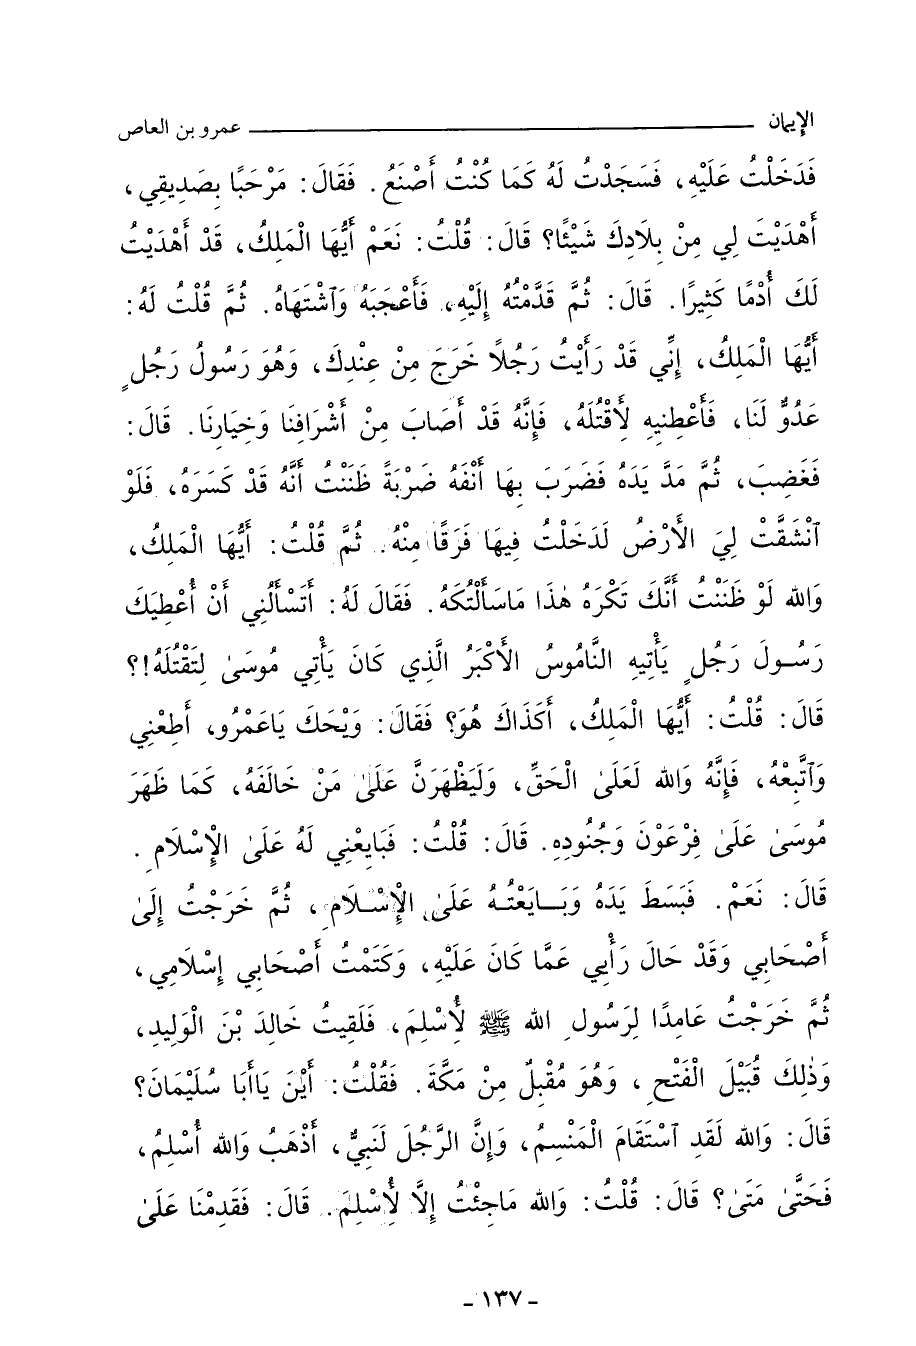 الإيمان ــــــــــــــــــــــــــــــــ عمرو بن العاص
فَدَخَلْتُ عَلَيْهِ، فَسَجَدْتُ لَهُ كَمَا كُنْتُ أَصْنَعُ. فَقَالَ: مَرْحَبًا بِصَدِيقِي،
أَهْدَيْتَ لِي مِنْ بِلَادِكَ شَيْئًا؟ قَالَ: قُلْتُ: نَعَمْ أَيُّهَا الْمَلِكُ، قَدْ أَهْدَيْتُ
لَكَ أُدْمًا كَثِيرًا. قَالَ: ثُمَّ قَدَّمْتُهُ إِلَيْهِ، فَأَعْجَبَهُ وَٱشْتَهَاهُ. ثُمَّ قُلْتُ لَهُ:
أَيُّهَا الْمَلِكُ، إِنِّي قَدْ رَأَيْتُ رَجُلًا خَرَجَ مِنْ عِنْدِكَ، وَهُوَ رَسُولُ رَجُلٍ
عَدُوٍّ لَنَا، فَأَعْطِنِيهِ لِأَقْتُلَهُ، فَإِنَّهُ قَدْ أَصَابَ مِنْ أَشْرَافِنَا وَخِيَارِنَا. قَالَ:
فَغَضِبَ، ثُمَّ مَدَّ يَدَهُ فَضَرَبَ بِهَا أَنْفَهُ ضَرْبَةً ظَنَنْتُ أَنَّهُ قَدْ كَسَرَهُ، فَلَوْ
ٱنْشَقَّتْ لِيَ الأَرْضُ لَدَخَلْتُ فِيهَا فَرَقًا مِنْهُ. ثُمَّ قُلْتُ: أَيُّهَا الْمَلِكُ،
وَالله لَوْ ظَنَنْتُ أَنَّكَ تَكْرَهُ هٰذَا مَاسَأَلْتُكَهُ. فَقَالَ لَهُ: أَتَسْأَلُنِي أَنْ أُعْطِيَكَ
رَسُولَ رَجُلٍ يَأْتِيهِ النَّامُوسُ الأَكْبَرُ الَّذِي كَانَ يَأْتِي مُوسَىٰ لِتَقْتُلَهُ!؟
قَالَ: قُلْتُ: أَيُّهَا الْمَلِكُ، أَكَذَاكَ هُوَ؟ فَقَالَ: وَيْحَكَ يَاعَمْرُو، أَطِعْنِي
وَٱتَّبِعْهُ، فَإِنَّهُ وَالله لَعَلَىٰ الْحَقِّ، وَلَيَظْهَرَنَّ عَلَىٰ مَنْ خَالَفَهُ، كَمَا ظَهَرَ
مُوسَىٰ عَلَىٰ فِرْعَوْنَ وَجُنُودِهِ. قَالَ: قُلْتُ: فَبَايِعْنِي لَهُ عَلَىٰ الإِسْلَامِ.
قَالَ: نَعَمْ. فَبَسَطَ يَدَهُ وَبَـايَعْتُـهُ عَلَىٰ الإِسْـلَامِ، ثُمَّ خَرَجْتُ إِلَىٰ
أَصْحَابِي وَقَدْ حَالَ رَأْيِي عَمَّا كَانَ عَلَيْهِ، وَكَتَمْتُ أَصْحَابِي إِسْلَامِي،
ثُمَّ خَرَجْتُ عَامِدًا لِرَسُولِ الله ﷺ لِأُسْلِمَ، فَلَقِيتُ خَالِدَ بْنَ الْوَلِيدِ،
وَذٰلِكَ قُبَيْلَ الْفَتْحِ، وَهُوَ مُقْبِلٌ مِنْ مَكَّةَ. فَقُلْتُ: أَيْنَ يَاأَبَا سُلَيْمَانَ؟
قَالَ: وَالله لَقَدِ ٱسْتَقَامَ الْمَنْسِمُ، وَإِنَّ الرَّجُلَ لَنَبِيٌّ، أَذْهَبُ وَالله أُسْلِمُ،
فَحَتَّىٰ مَتَىٰ؟ قَالَ: قُلْتُ: وَالله مَاجِئْتُ إِلَّا لِأُسْلِمَ. قَالَ: فَقَدِمْنَا عَلَىٰ
- ١٣٧ -